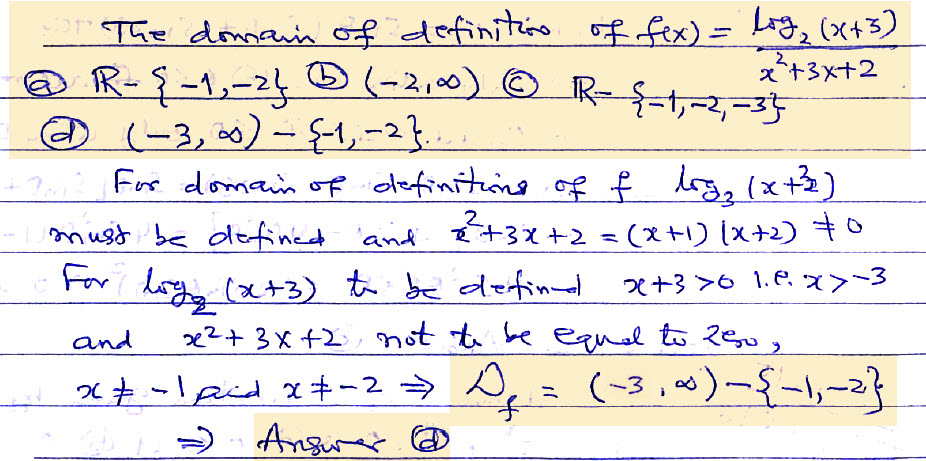 The domain of definition of f(x) = log₂ (x+3) / x²+3x+2
ⓐ ℝ- {-1,-2} ⓑ (-2,∞) ⓒ ℝ- {-1,-2,-3}
ⓓ (-3, ∞) - {-1, -2}.
For domain of definitions of f log₃ (x+
must be defined and x²+3x+2 = (x+1) (x+2) ≠ 0
For log₂ (x+3) to be defined x+3>0 i.e. x>-3
and x²+3x+2 not to be equal to zero,
x ≠ -1 and x ≠ -2 ⇒ D_f = (-3, ∞) - {-1,-2}
⇒ Answer ⓓ